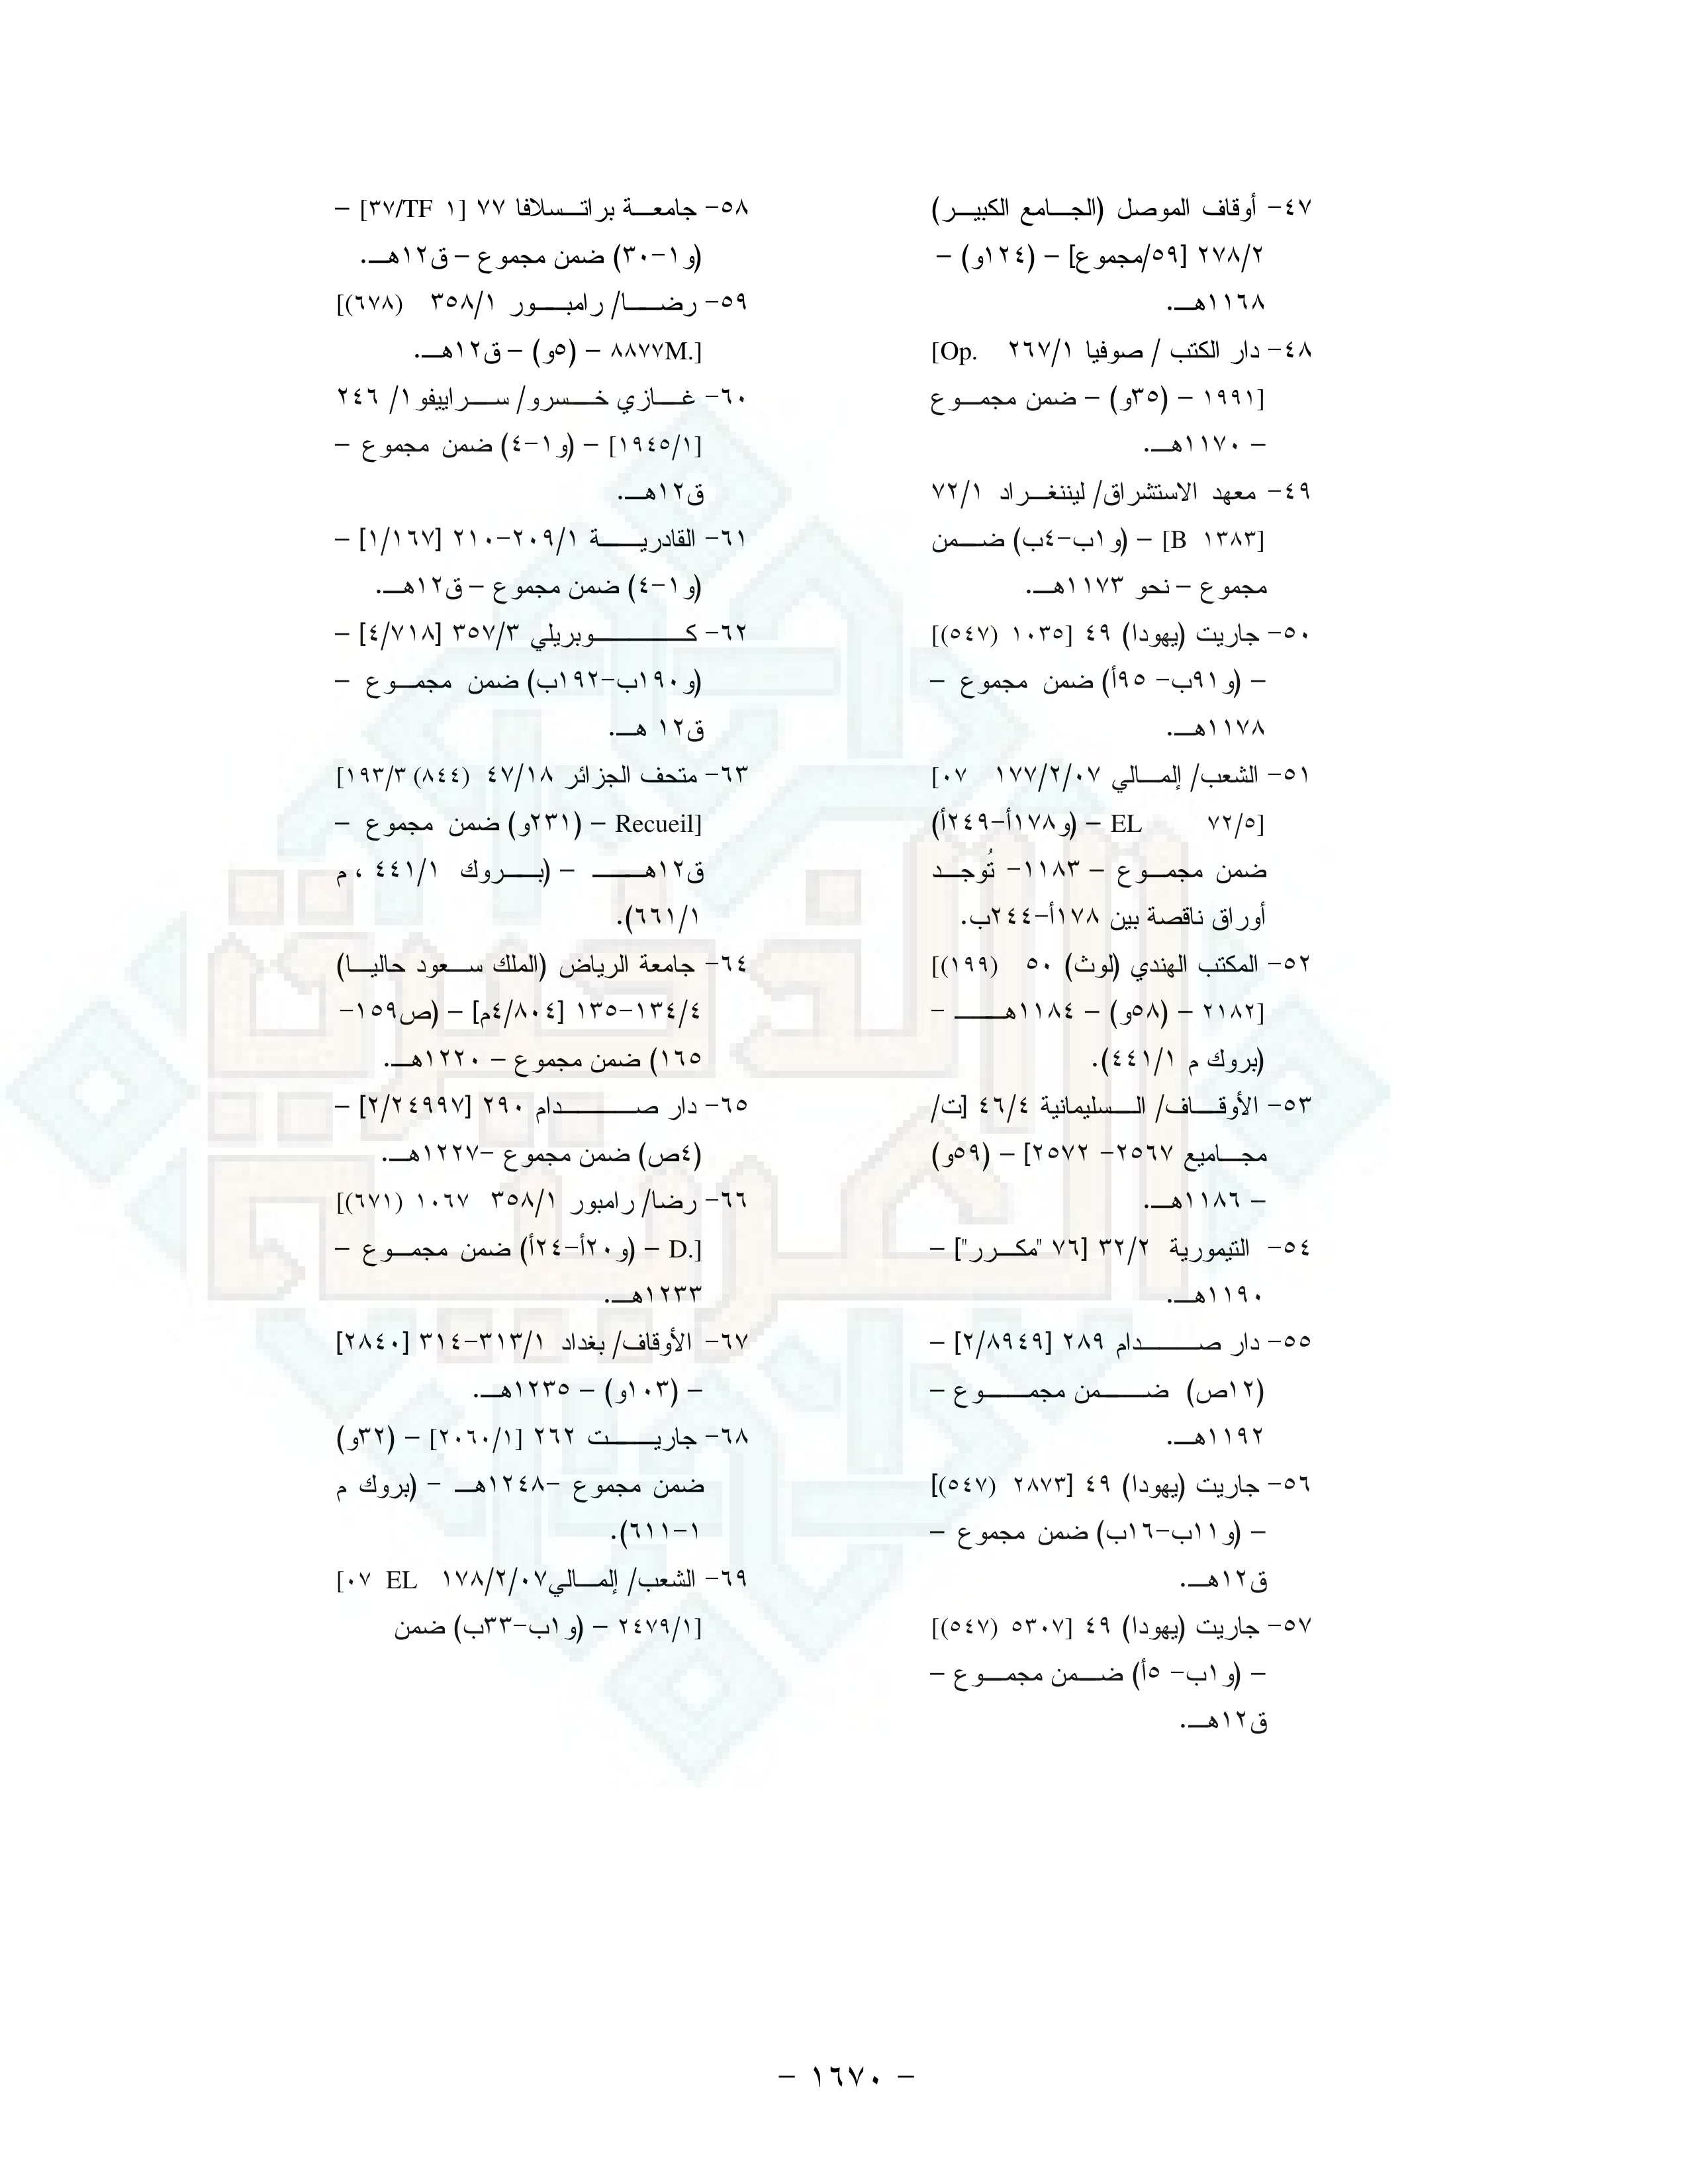 ٤٧- أوقاف الموصل (الجامع الكبير)
٢٧٨/٢ [٥٩/مجموع] - (١٢٤و) -
١١٦٨هـ.
٤٨- دار الكتب / صوفيا ٢٦٧/١ [Op.
١٩٩١] - (٣٥و) - ضمن مجموع
- ١١٧٠هـ.
٤٩- معهد الاستشراق/ ليننغراد ٧٢/١
[B ١٣٨٣] - (و١ب-٤ب) ضمن
مجموع - نحو ١١٧٣هـ.
٥٠- جاريت (يهودا) ٤٩ [١٠٣٥ (٥٤٧)]
- (و٩١ب- ٩٥أ) ضمن مجموع -
١١٧٨هـ.
٥١- الشعب/ إلمالي ١٧٧/٢/٠٧ [٠٧
EL ٧٢/٥] - (و١٧٨أ-٢٤٩أ)
ضمن مجموع - ١١٨٣- تُوجد
أوراق ناقصة بين ١٧٨أ-٢٤٤ب.
٥٢- المكتب الهندي (لوث) ٥٠ [(١٩٩)
٢١٨٢] - (٥٨و) - ١١٨٤هـ -
(بروك م ٤٤١/١).
٥٣- الأوقاف/ السليمانية ٤٦/٤ [ت/
مجاميع ٢٥٦٧- ٢٥٧٢] - (٥٩و)
- ١١٨٦هـ.
٥٤- التيمورية ٣٢/٢ [٧٦ "مكرر"] -
١١٩٠هـ.
٥٥- دار صدام ٢٨٩ [٢/٨٩٤٩] -
(١٢ص) ضمن مجموع -
١١٩٢هـ.
٥٦- جاريت (يهودا) ٤٩ [٢٨٧٣ (٥٤٧)]
- (و١١ب-١٦ب) ضمن مجموع -
ق١٢هـ.
٥٧- جاريت (يهودا) ٤٩ [٥٣٠٧ (٥٤٧)]
- (و١ب- ٥أ) ضمن مجموع -
ق١٢هـ.
٥٨- جامعة براتسلافا ٧٧ [٣٧/TF ١] -
(و١-٣٠) ضمن مجموع - ق١٢هـ.
٥٩- رضا/ رامبور ٣٥٨/١ [(٦٧٨)
٨٨٧٧M.] - (٥و) - ق١٢هـ.
٦٠- غازي خسرو/ سراييفو١/ ٢٤٦
[١٩٤٥/١] - (و١-٤) ضمن مجموع -
ق١٢هـ.
٦١- القادرية ٢٠٩/١-٢١٠ [١/١٦٧] -
(و١-٤) ضمن مجموع - ق١٢هـ.
٦٢- كوبريلي ٣٥٧/٣ [٤/٧١٨] -
(و١٩٠ب-١٩٢ب) ضمن مجموع -
ق١٢ هـ.
٦٣- متحف الجزائر ٤٧/١٨ [١٩٣/٣ (٨٤٤)
Recueil] - (٢٣١و) ضمن مجموع -
ق١٢هـ - (بروك ٤٤١/١ ، م
٦٦١/١).
٦٤- جامعة الرياض (الملك سعود حاليا)
١٣٤/٤-١٣٥ [٤/٨٠٤م] - (ص١٥٩-
١٦٥) ضمن مجموع - ١٢٢٠هـ.
٦٥- دار صدام ٢٩٠ [٢/٢٤٩٩٧] -
(٤ص) ضمن مجموع -١٢٢٧هـ.
٦٦- رضا/ رامبور ٣٥٨/١ [(٦٧١) ١٠٦٧
D.] - (و٢٠أ-٢٤أ) ضمن مجموع -
١٢٣٣هـ.
٦٧- الأوقاف/ بغداد ٣١٣/١-٣١٤ [٢٨٤٠]
- (١٠٣و) - ١٢٣٥هـ.
٦٨- جاريت ٢٦٢ [٢٠٦٠/١] - (٣٢و)
ضمن مجموع -١٢٤٨هـ - (بروك م
١-٦١١).
٦٩- الشعب/ إلمالي١٧٨/٢/٠٧ [٠٧ EL
٢٤٧٩/١] - (و١ب-٣٣ب) ضمن
- ١٦٧٠ -